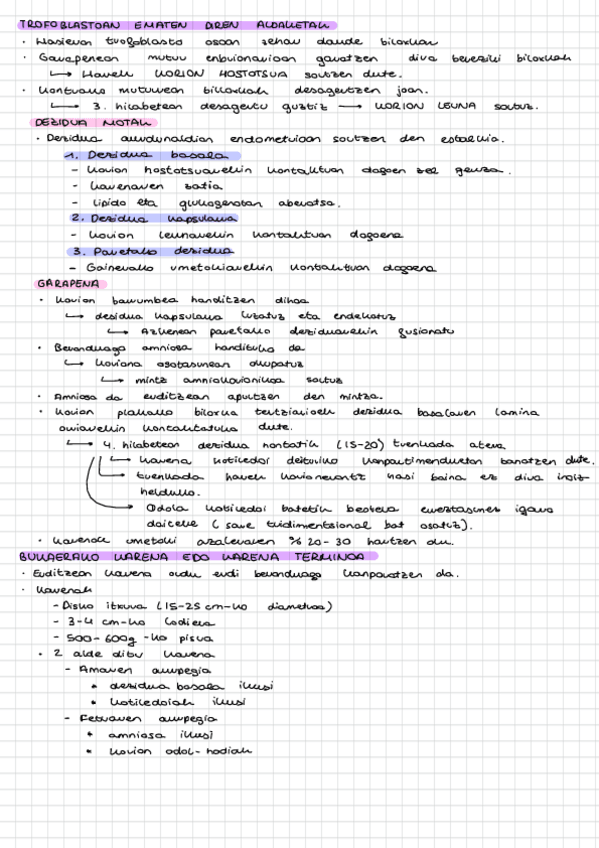 TROFOBLASTOAN EMATEN DIREN ALDAKETAK
· Hasieran trofoblasto osoan zehar daude biloxkak
· Garapenean mutur enbrionarioan garatzen dira bereziki biloxkak
↳ Hauek KORION HOSTOTSUA sortzen dute.
· Kontrako muturrean biloxkak desagertzen joan.
↳ 3. hilabetean desagertu guztiz → KORION LEUNA sortuz.
DEZIDUA MOTAK
· Dezidua aurdunaldian endometrioan sortzen den estalkia.
1. Dezidua basala
- Korion hostotsuarekin kontaktuan dagoen zel geruza.
- karenaren zatia
- lipido eta glukogenoan aberatsa.
2. Dezidua kapsularra
- Korion leunarekin kontaktuan dagoena
3. Paretako dezidua
- Gainerako umetokiarekin kontaktuan dagoena
GARAPENA
· Korion barrunbea handitzen dihoa
↳ dezidua kapsularra luzatuz eta endekatuz
↳ Azkenean paretako deziduarekin fusionatu
· Beranduago amniosa handituko da
↳ koriona osotasunean okupatuz
↳ mintz amniokorionikoa sortuz
· Amniosa da erditzean apurtzen den mintza.
· Korion plakako bilorka tertziarioek dezidua basalaren lamina
oriarekin kontaktatuko dute.
↳ 4. hilabetean dezidua hortatik (15-20) trenkada atera
↳ karena kotiledoi deituriko konpartimenduetan banatzen dute.
↳ trenkada hauek korionerantz hasi baina ez dira iritsi
helduko.
→ Odola kotiledoi batetik bestera erraztasunez igaro
daiteke (sare tridimentsional bat osatuz).
· Karenak umetoki azaleraren % 20-30 hartzen du.
BUKAERAKO KARENA EDO KARENA TERMINOA
· Erditzean karena ordu erdi beranduago kanporatzen da.
· Karenak
- Disko itxura (15-25 cm-ko diametroa)
- 3-4 cm-ko lodiera
- 500-600g -ko pisua
· 2 alde ditu karena
- Amaren aurpegia
• dezidua basala ikusi
• kotiledoiak ikusi
- Fetuaren aurpegia
• amniosa ikusi
• korion odol-hodiak